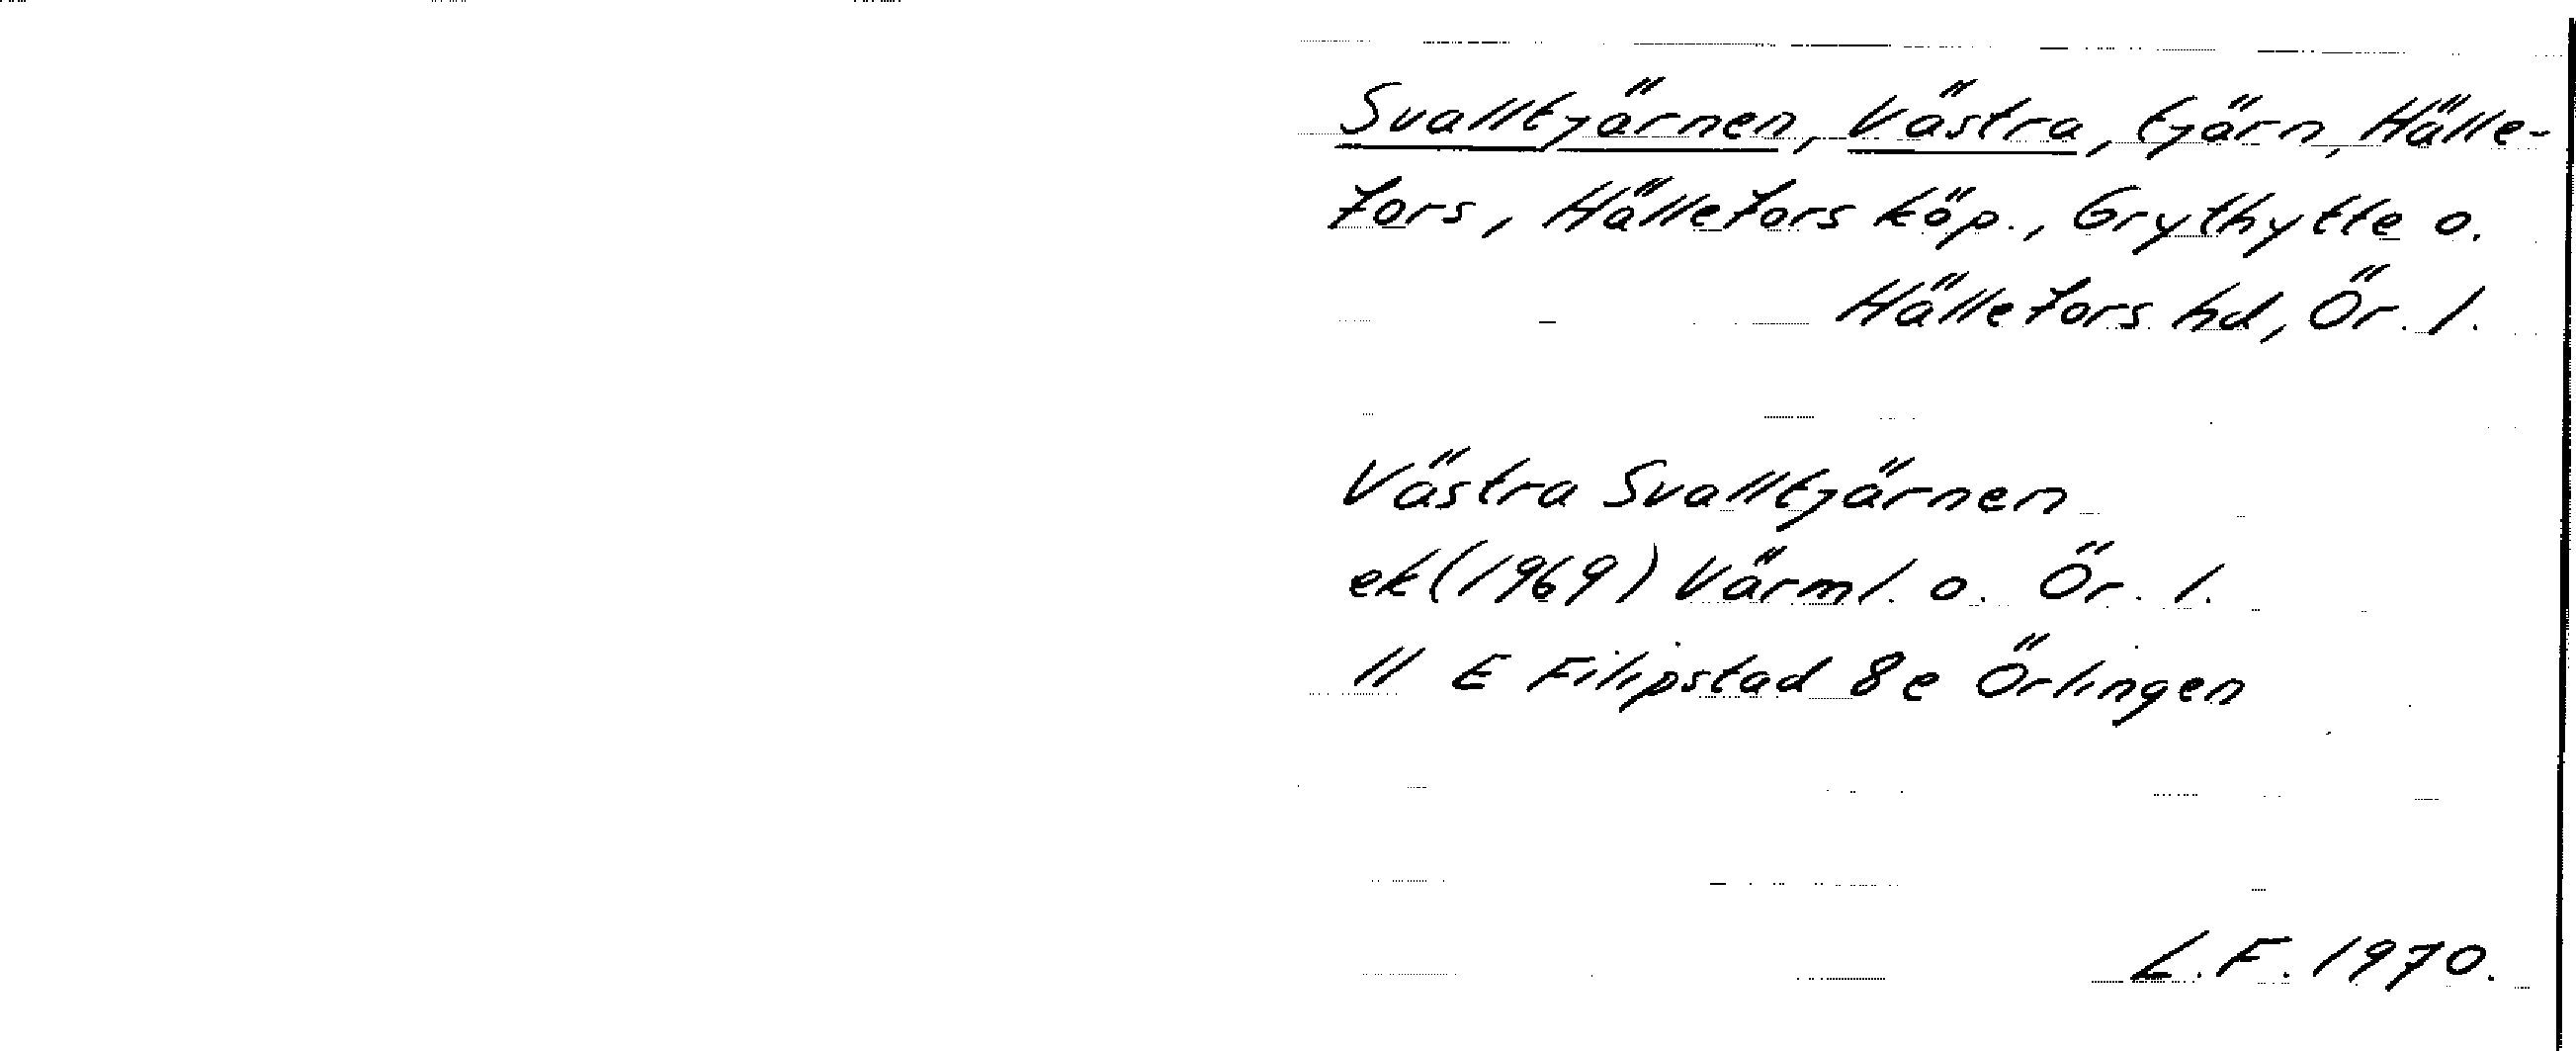 Svalltjärnen, Västra, tjärn, Hälle-
fors, Hällefors köp., Grythytte o.
Hällefors hd, Ör. l.
Västra Svalltjärnen
ek (1969) Värml. o. Ör. l.
11 E Filipstad 8e Örlingen
L.F. 1970.